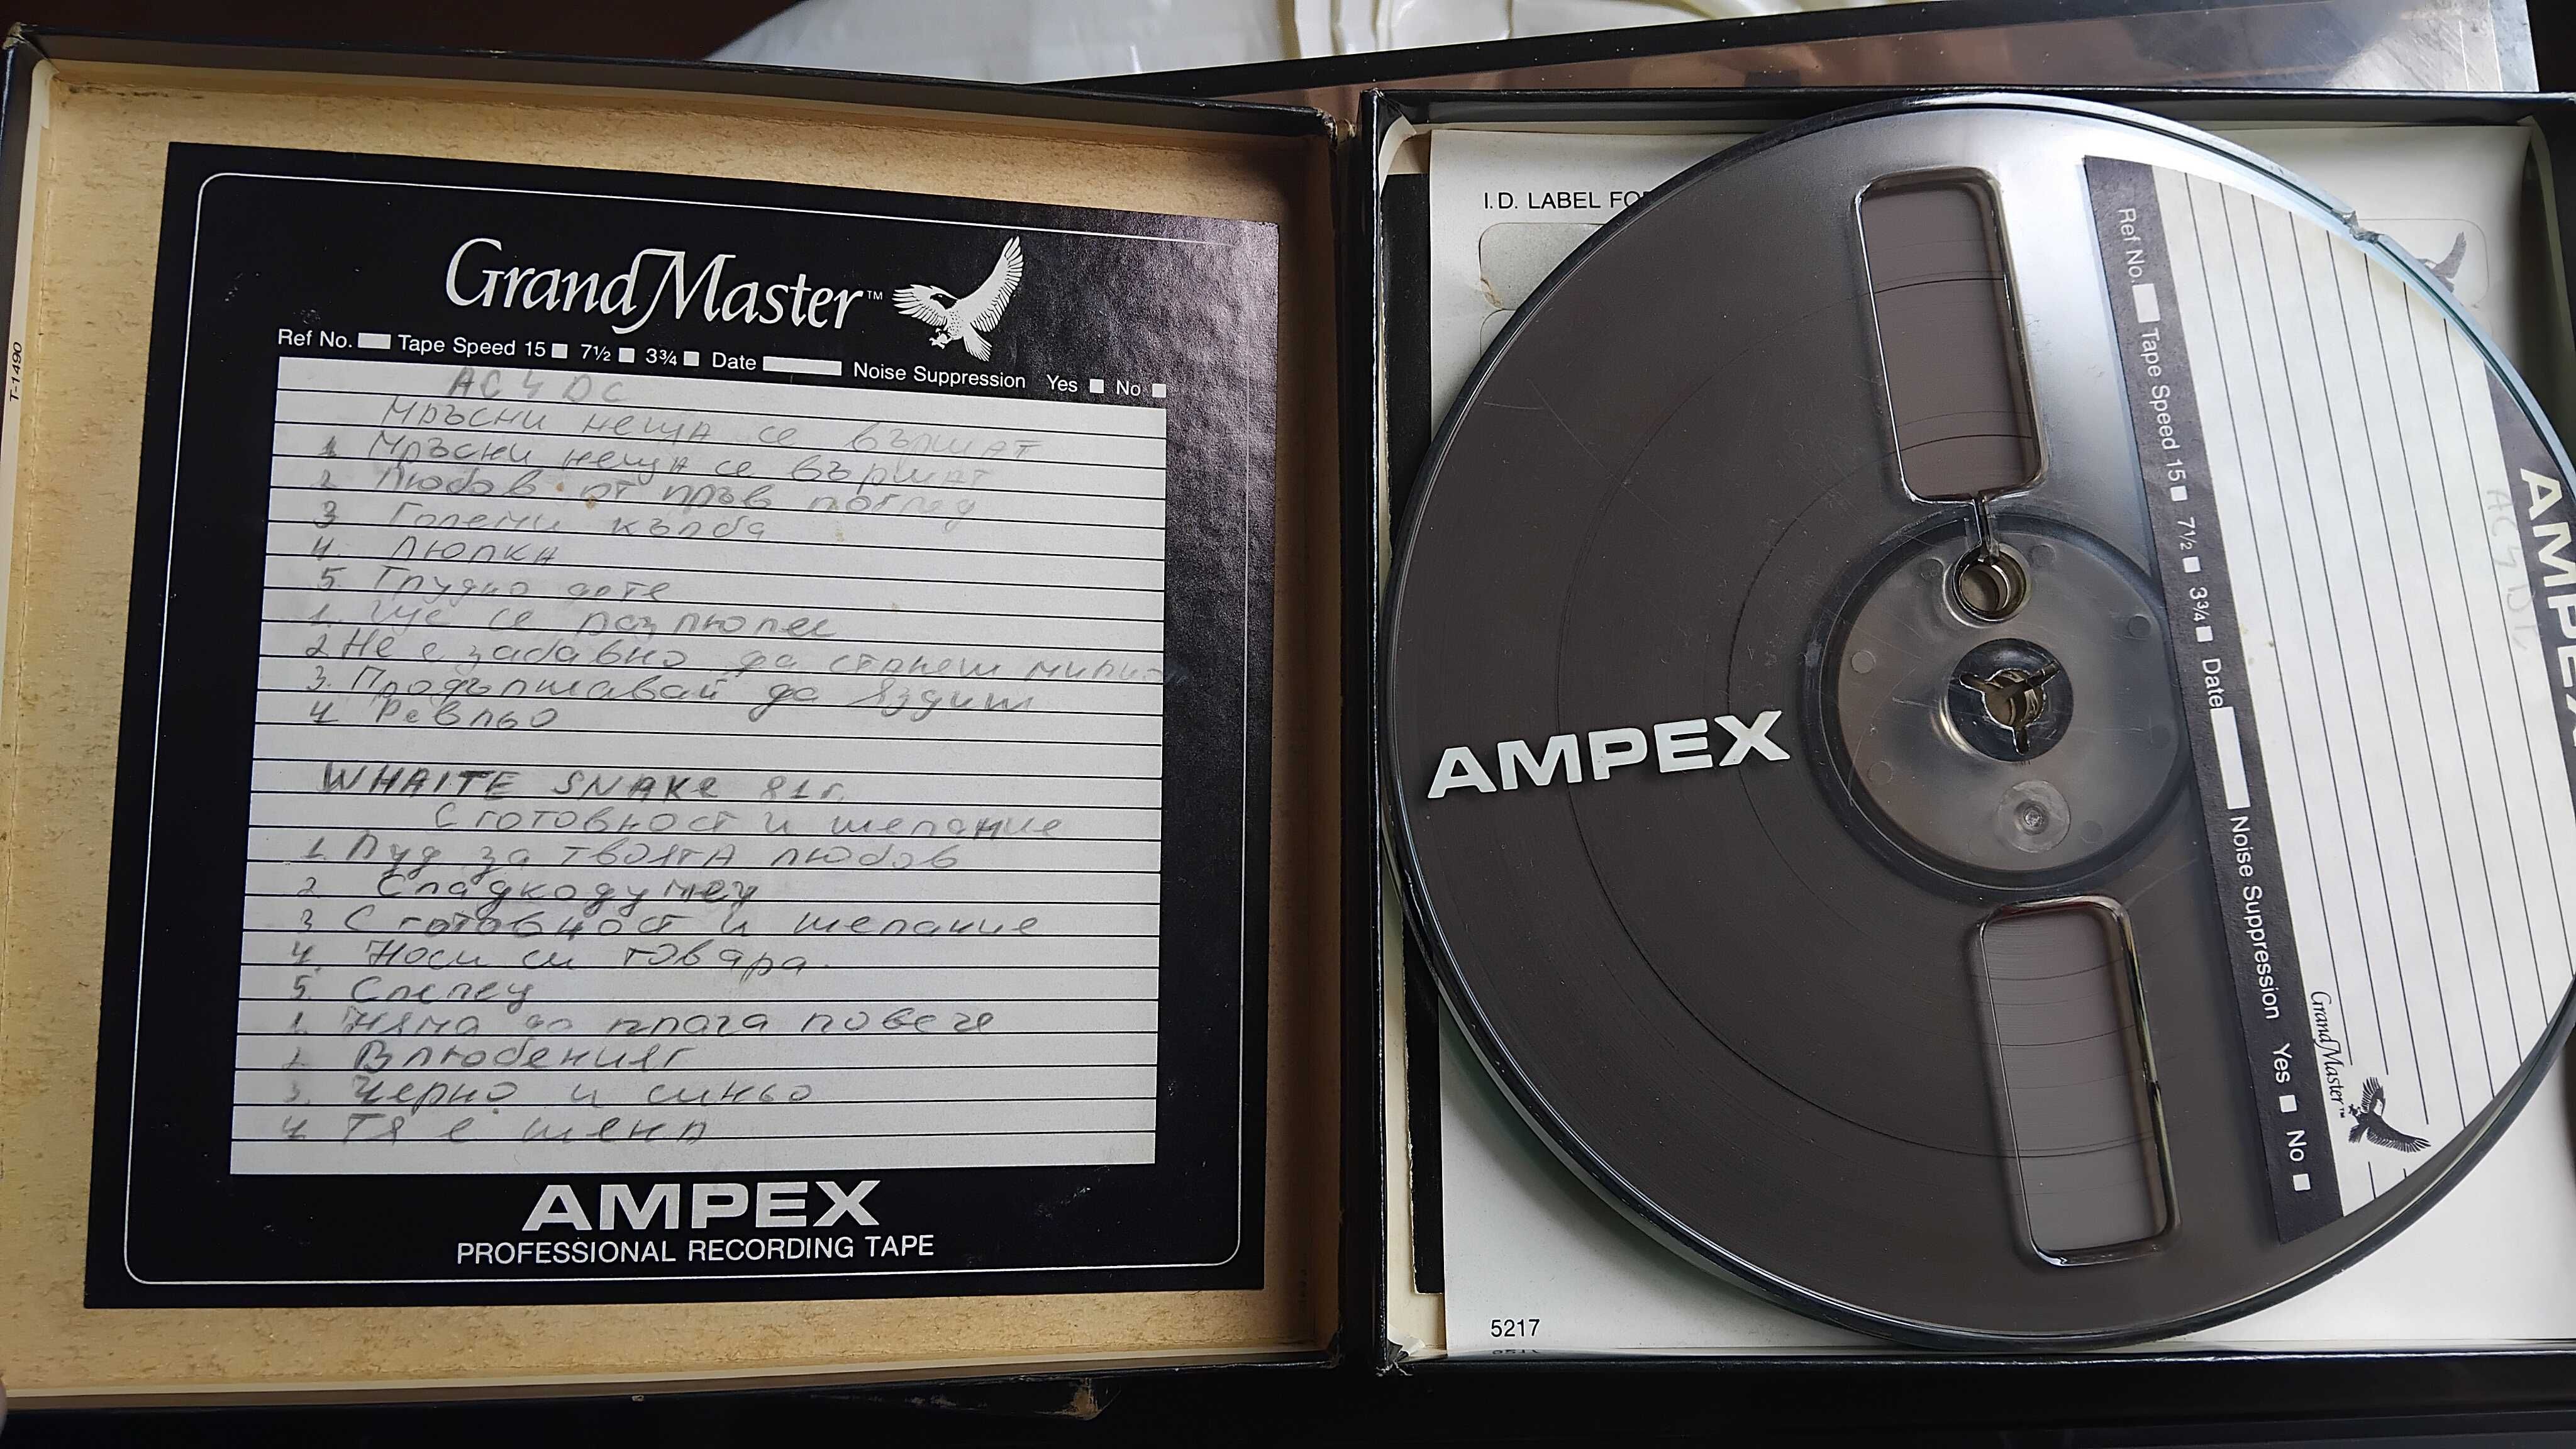 GrandMaster™
Ref No. Tape Speed 15 7½ 3¾ Date Noise Suppression Yes No
AC ϟ DC
Мръсни неща се вършат
1 Мръсни неща се вършат
2 Любов от пръв поглед
3 Големи кълба
4. Люлка
5. Трудно дете
1. Ще се разлюлее
2 Не е забавно да станеш
3. Продължавай да яздиш
4 Ревльо
WHAITE SNAKE 81г.
С готовност и желание
1. Луд за твоята любов
2 Сладкодумец
3 С готовност и желание
4 Носи си товара.
5. Слепец
1. Няма да плача повече
2. Влюбеният
3. Черно и синьо
4 Тя е жена
AMPEX
PROFESSIONAL RECORDING TAPE
T-1490
I.D. LABEL FO
AMPEX
5217
Ref No. Tape Speed 15 7½ 3¾ Date Noise Suppression Yes No
GrandMaster™
AC ϟ DC
AMPEX